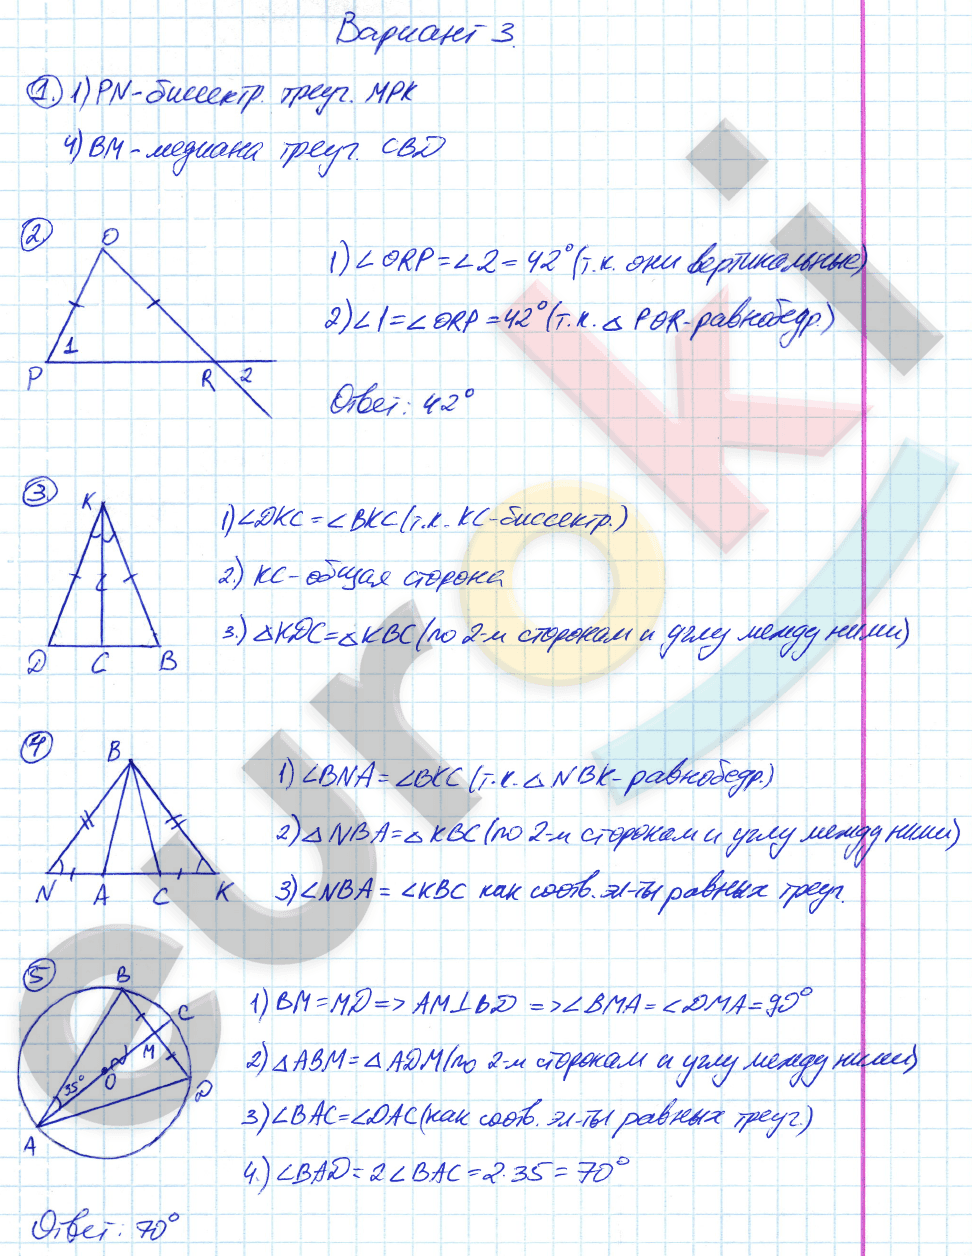 Вариант 3.
1. 1) PN - биссектр. треуг. MPK
4) BM - медиана треуг. CBD
2.
O
1
P
R
2
1) ∠ORP = ∠2 = 42° (т.к. они вертикальные)
2) ∠1 = ∠ORP = 42° (т.к. △ POR - равнобедр.)
Ответ: 42°
3.
K
D
C
B
1) ∠DKC = ∠BKC (т.к. KC - биссектр.)
2.) KC - общая сторона
3.) △KDC = △KBC (по 2-м сторонам и углу между ними)
4
B
N
A
C
K
1) ∠BNA = ∠BKC (т.к. △ NBK - равнобедр.)
2) △ NBA = △ KBC (по 2-м сторонам и углу между ними)
3) ∠NBA = ∠KBC как соотв. эл-ты равных треуг.
5
B
C
M
35°
O
D
A
1) BM = MD => AM ⊥ BD => ∠BMA = ∠DMA = 90°
2) △ABM = △ADM (по 2-м сторонам и углу между ними)
3) ∠BAC = ∠DAC (как соотв. эл-ты равных треуг.)
4.) ∠BAD = 2∠BAC = 2·35 = 70°
Ответ: 70°
euroki